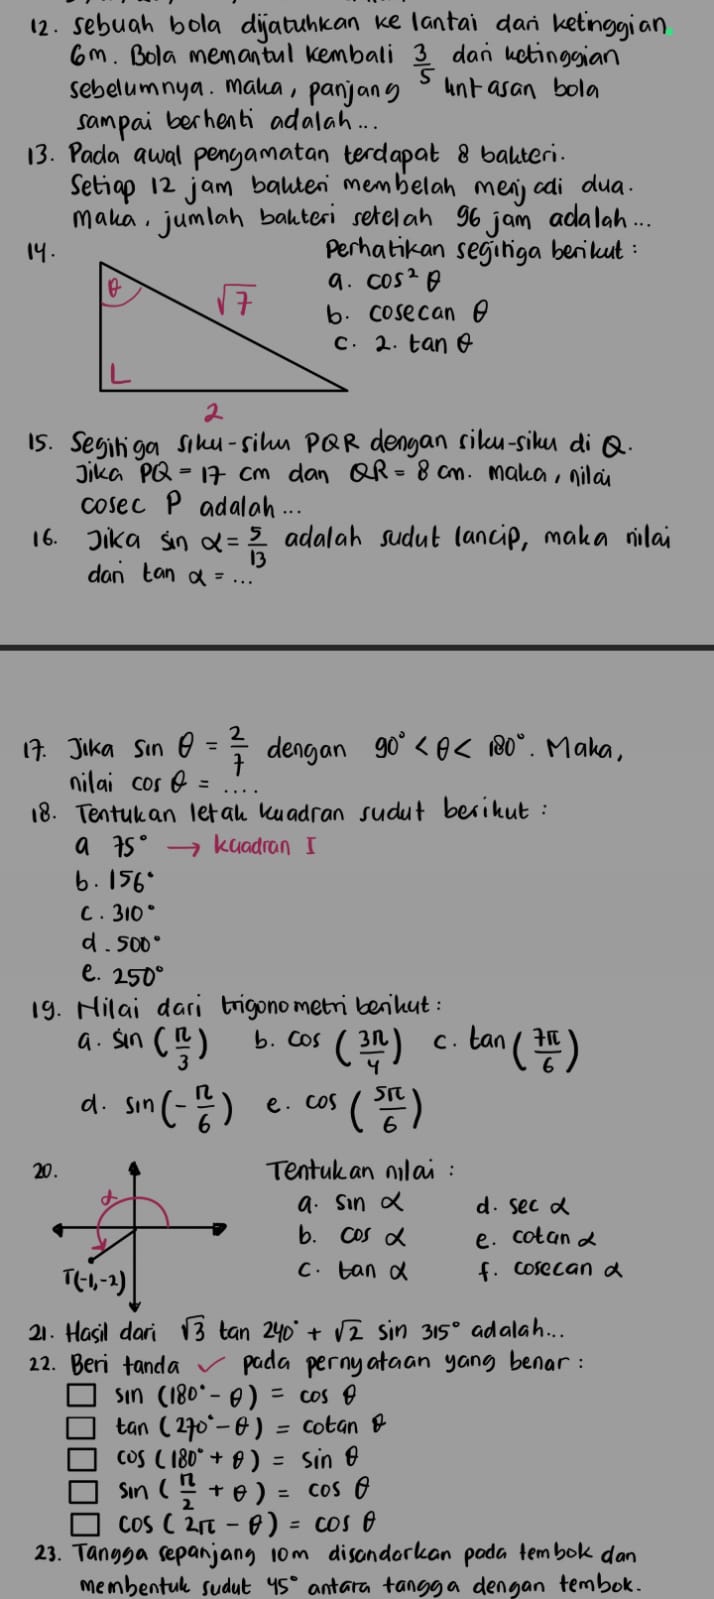 12. sebuah bola dijatuhkan ke lantai dari ketinggian
6m. Bola memantul kembali 3/5 dari ketinggian
sebelumnya. Maka, panjang lintasan bola
sampai berhenti adalah...
13. Pada awal pengamatan terdapat 8 bakteri.
Setiap 12 jam bakteri membelah menjadi dua.
Maka, jumlah bakteri setelah 96 jam adalah...
14. Perhatikan segitiga berikut :
θ
√7
L
2
a. cos² θ
b. cosecan θ
c. 2. tan θ
15. Segitiga siku-siku PQR dengan siku-siku di Q.
Jika PQ = 17 cm dan QR = 8 cm. Maka, nilai
cosec P adalah...
16. Jika sin α = 5/13 adalah sudut lancip, maka nilai
dari tan α = ...
17. Jika sin θ = 2/7 dengan 90° < θ < 180°. Maka,
nilai cos θ = ....
18. Tentukan letak kuadran sudut berikut :
a 75° → kuadran I
b. 156°
c. 310°
d. 500°
e. 250°
19. Nilai dari trigonometri berikut :
a. sin (π/3) b. cos (3π/4) c. tan (7π/6)
d. sin (-π/6) e. cos (5π/6)
20. Tentukan nilai :
α
T(-1,-2)
a. sin α d. sec α
b. cos α e. cotan α
c. tan α f. cosecan α
21. Hasil dari √3 tan 240° + √2 sin 315° adalah...
22. Beri tanda ✓ pada pernyataan yang benar :
☐ sin (180° - θ) = cos θ
☐ tan (270° - θ) = cotan θ
☐ cos (180° + θ) = sin θ
☐ sin (π/2 + θ) = cos θ
☐ cos (2π - θ) = cos θ
23. Tangga sepanjang 10m disandarkan pada tembok dan
membentuk sudut 45° antara tangga dengan tembok.